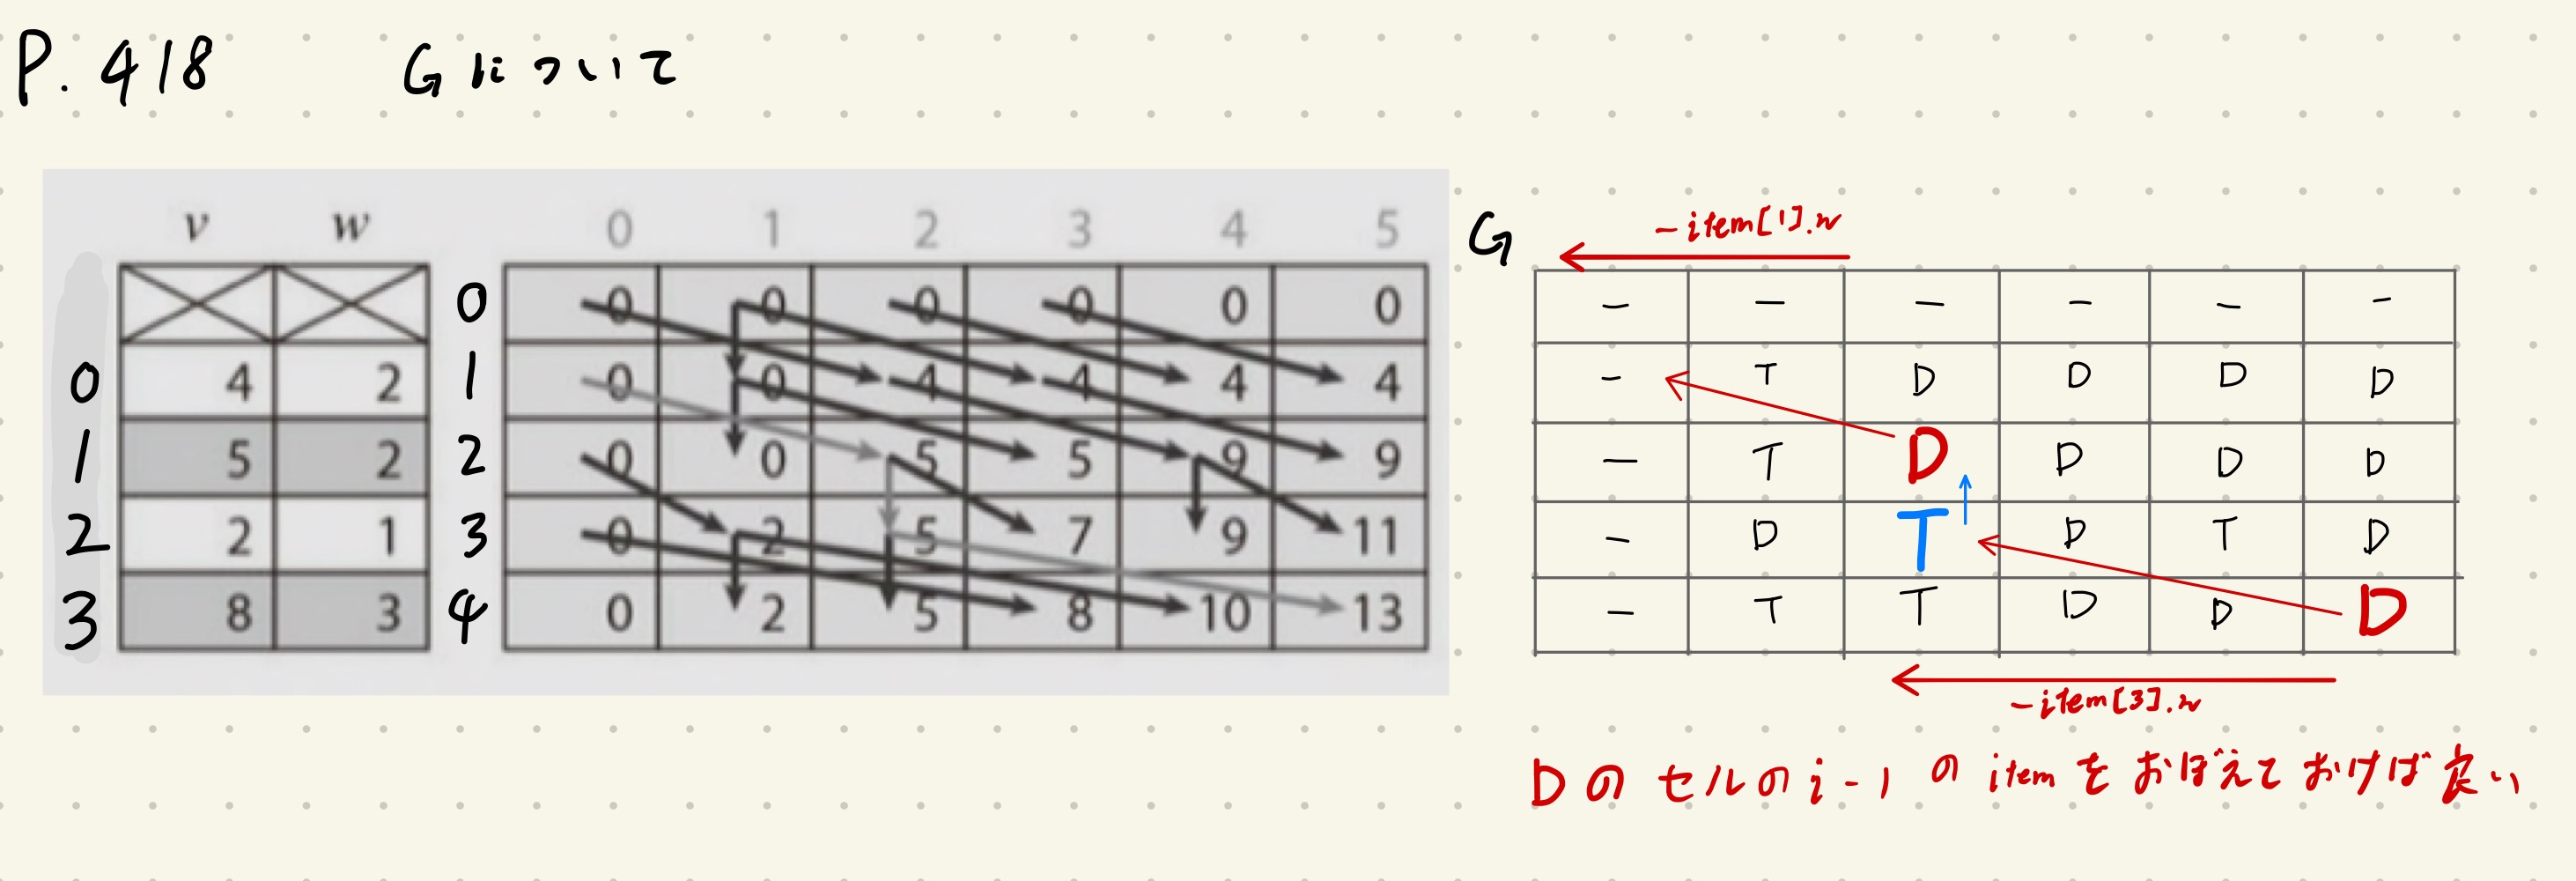 P. 418 Gについて
v w 0 1 2 3 4 5
0 0 0 0 0 0 0
0 4 2 1 0 0 4 4 4 4
1 5 2 2 0 0 5 5 9 9
2 2 1 3 0 2 5 7 9 11
3 8 3 4 0 2 5 8 10 13
G
-item[1].w
- - - - - -
- T D D D D
- T D D D D
- D T D T D
- T T D D D
-item[3].w
Dのセルのi-1のitemをおぼえておけば良い